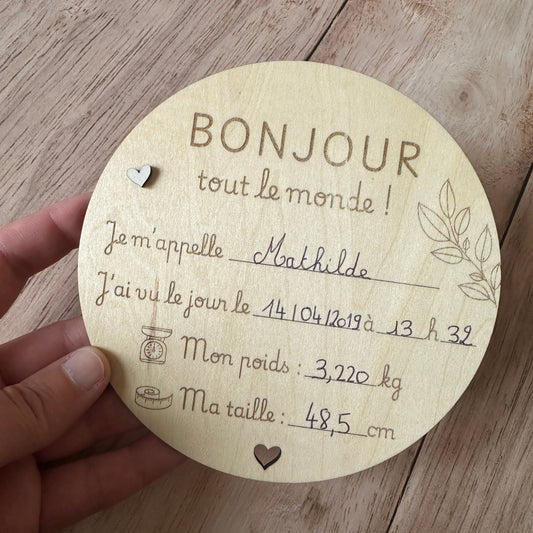 BONJOUR
tout le monde !
Je m'appelle Mathilde
J'ai vu le jour le 14/04/2019 à 13 h 32
Mon poids : 3,220 kg
Ma taille : 48,5 cm